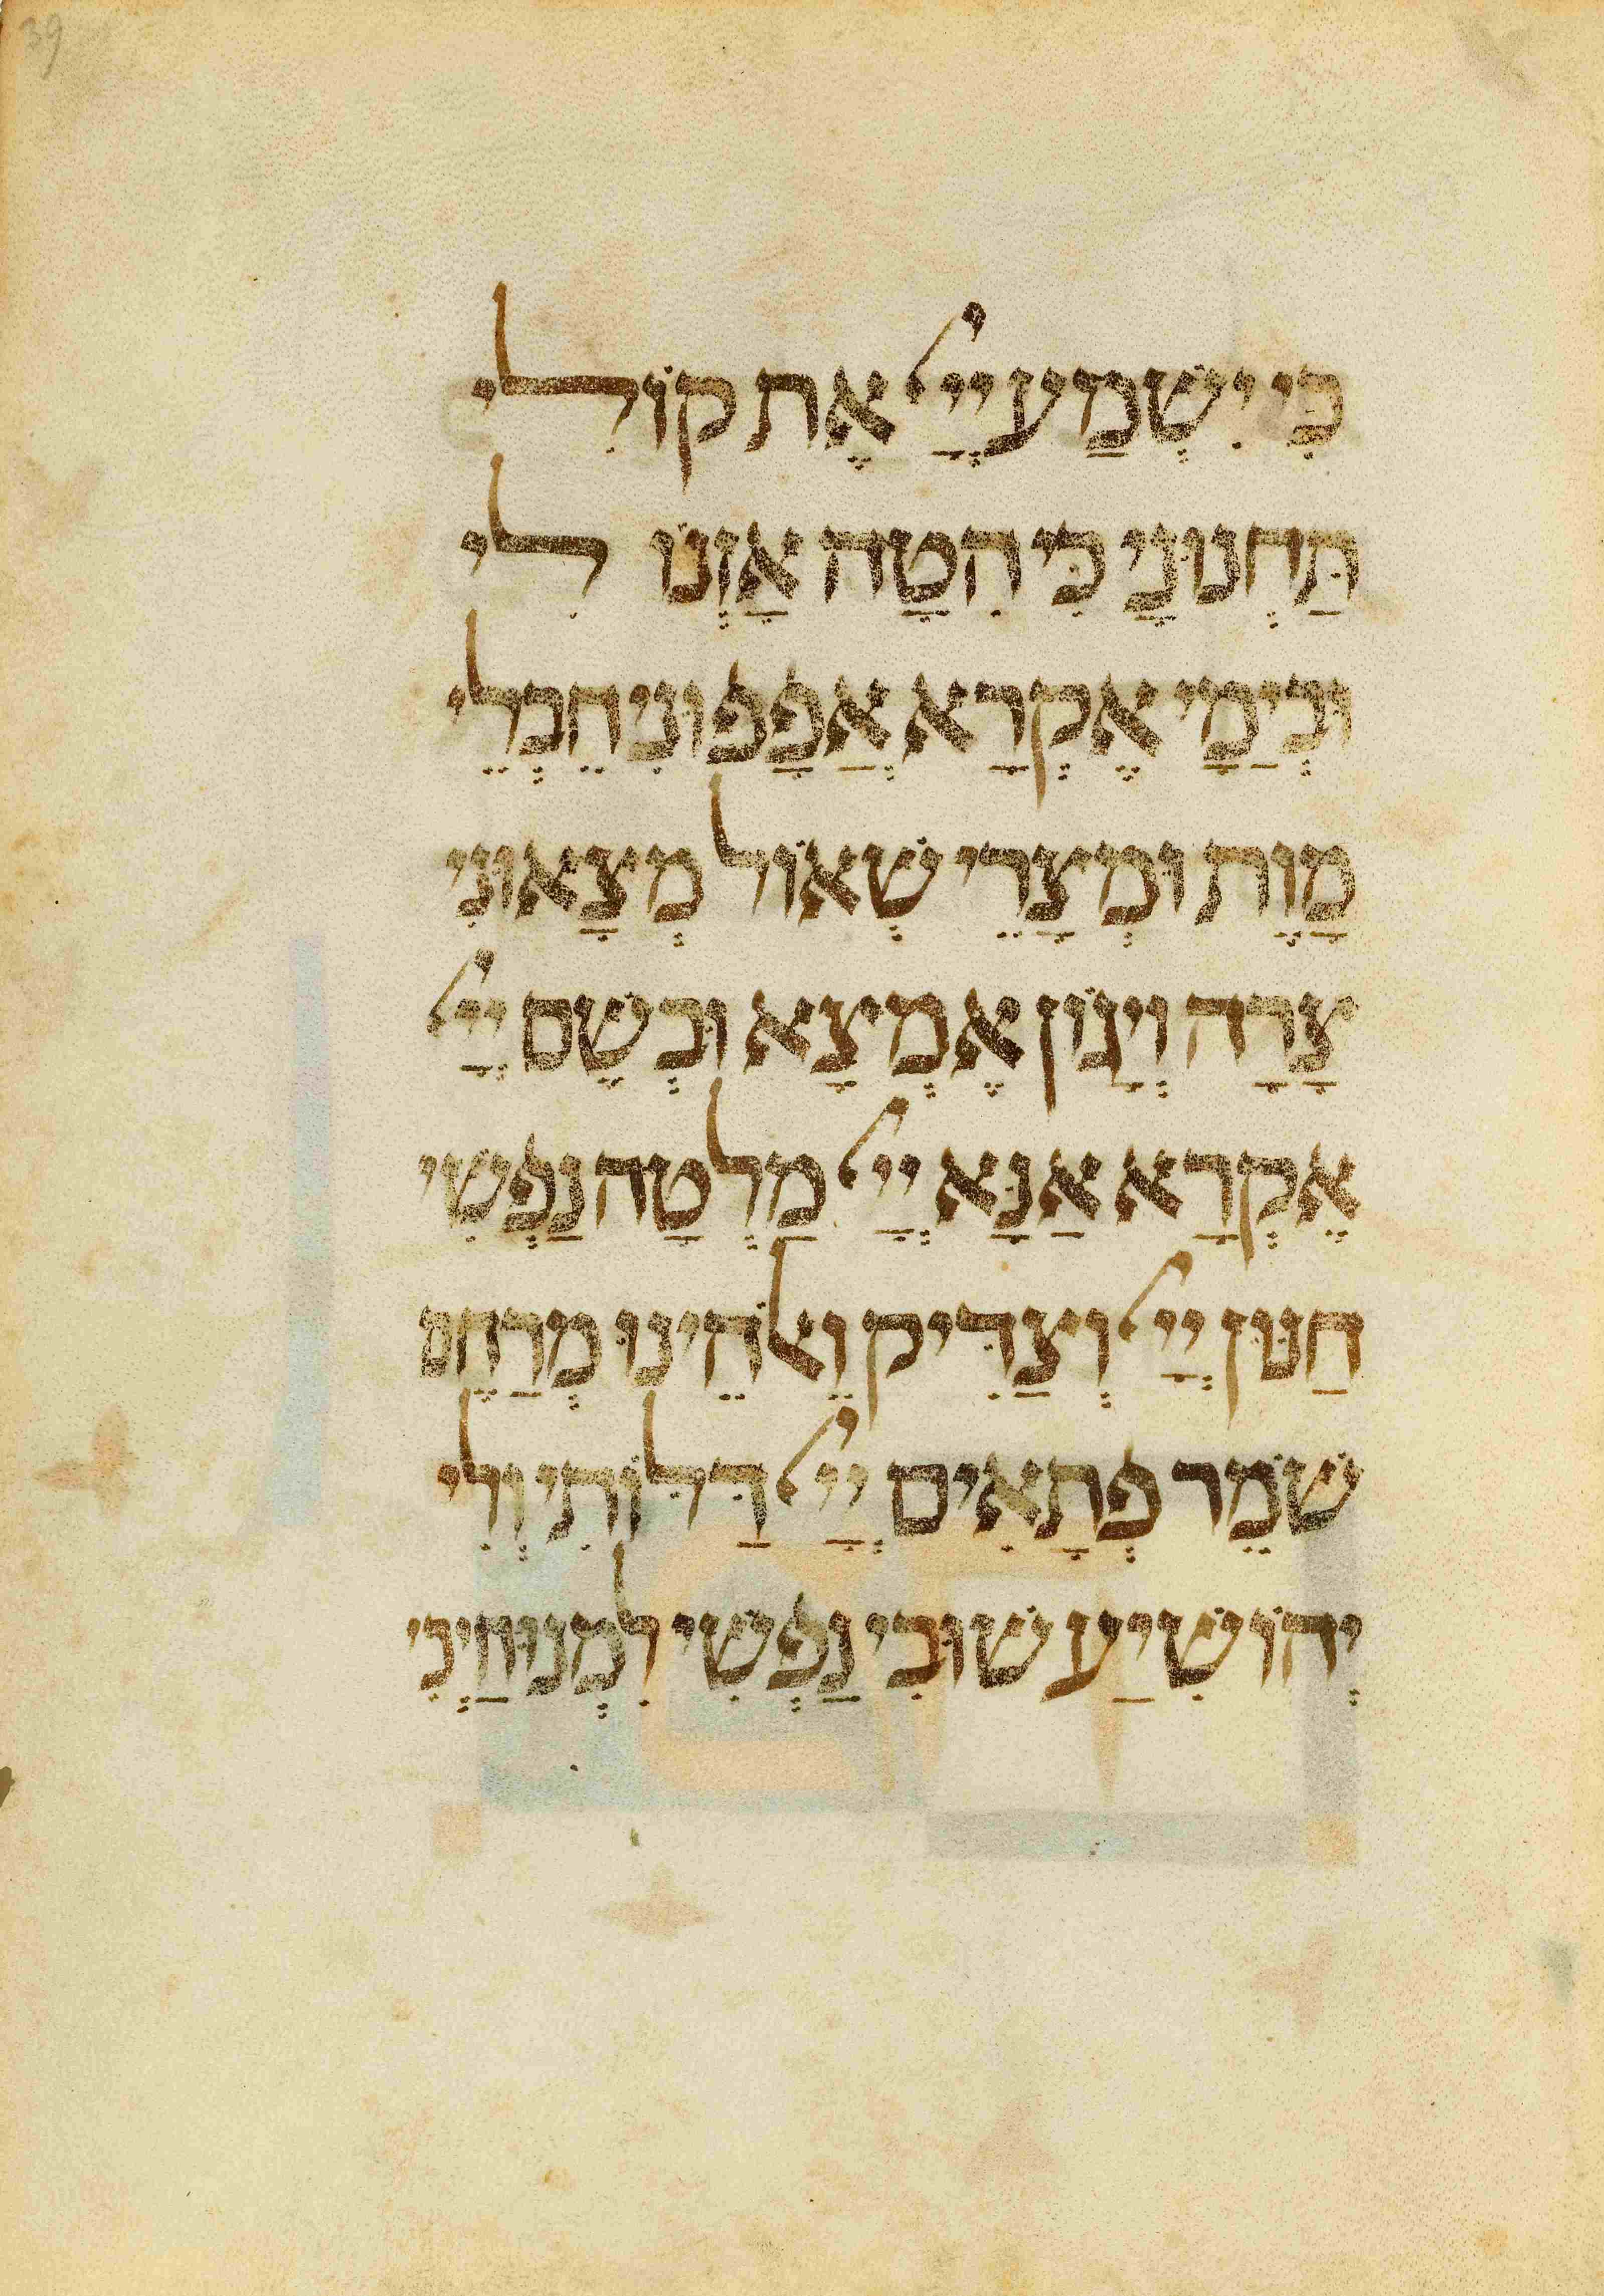 39
כִּי יִשְׁמַע יְיָ אֶת קוֹלִי
תַּחְנוּנָי כִּי הִטָּה אָזְנוֹ לִי
וּבְיָמַי אֶקְרָא אֲפָפוּנִי חֶבְלֵי
מָוֶת וּמְצָרֵי שְׁאוֹל מְצָאוּנִי
צָרָה וְיָגוֹן אֶמְצָא וּבְשֵׁם יְיָ
אֶקְרָא אָנָּא יְיָ מַלְּטָה נַפְשִׁי
חַנּוּן יְיָ וְצַדִּיק וֵאלֹהֵינוּ מְרַחֵם
שֹׁמֵר פְּתָאִים יְיָ דַּלּוֹתִי וְלִי
יְהוֹשִׁיעַ שׁוּבִי נַפְשִׁי לִמְנוּחָיְכִי